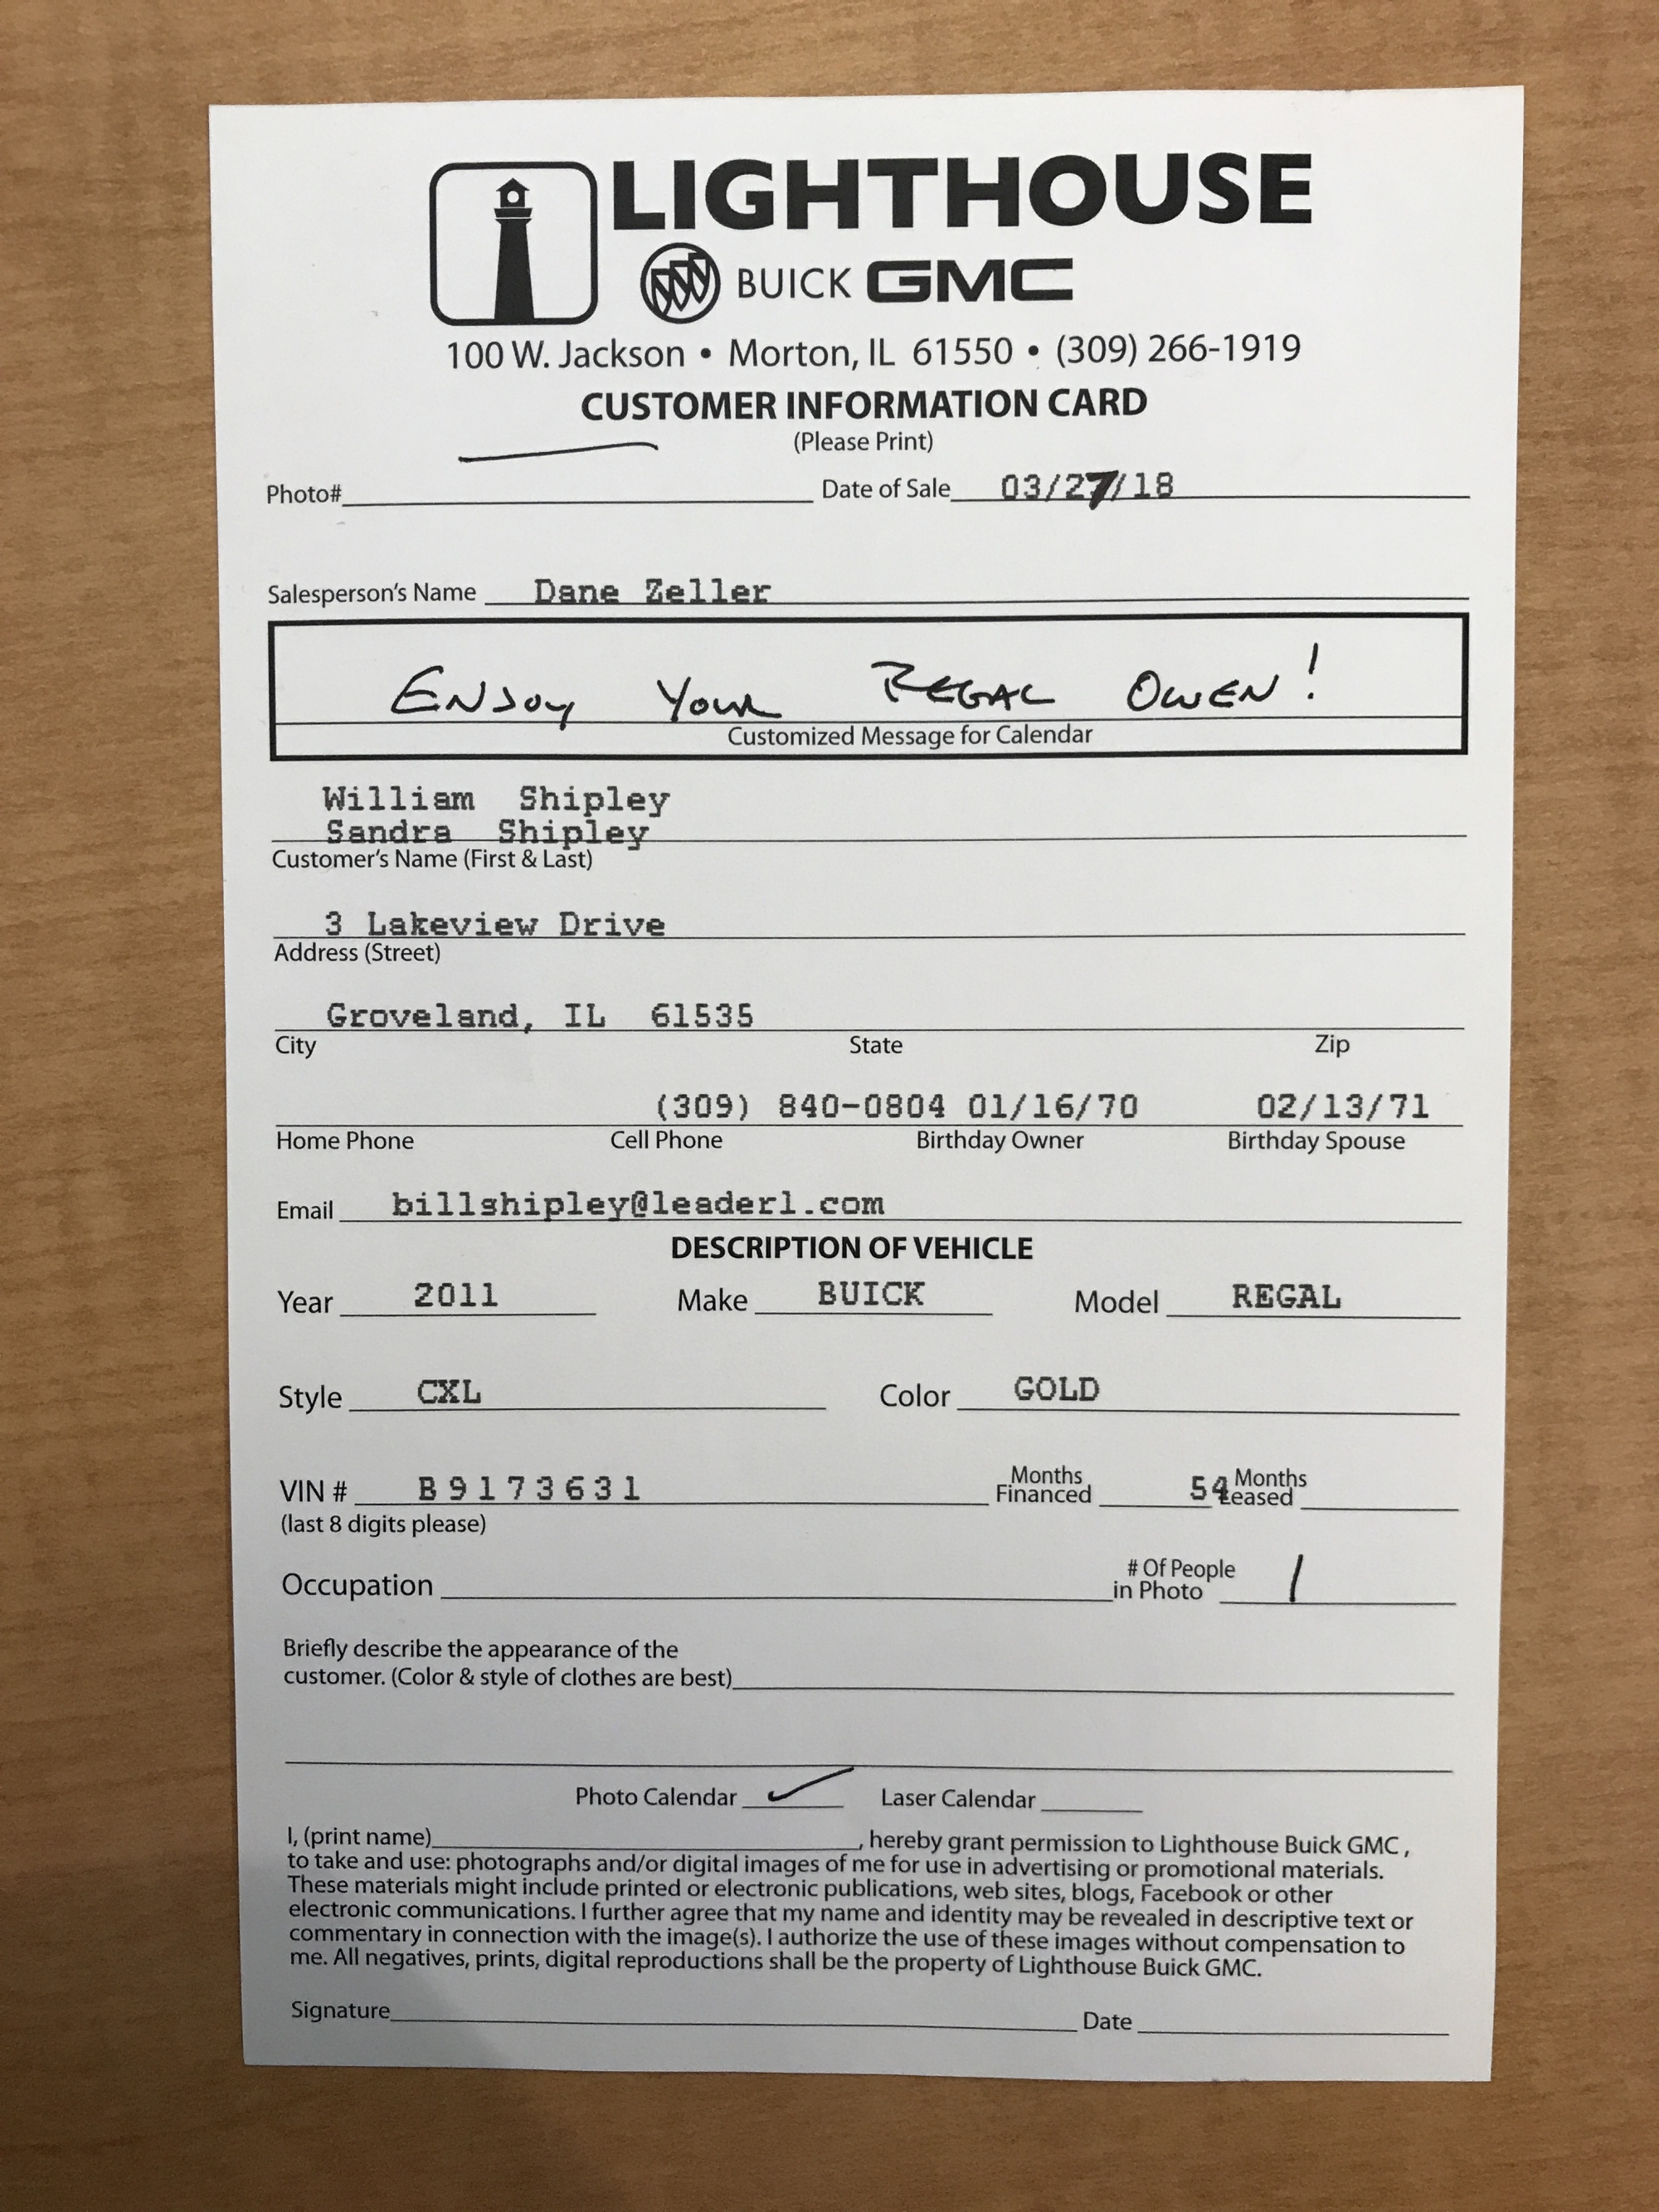 LIGHTHOUSE
BUICK GMC
100 W. Jackson • Morton, IL 61550 • (309) 266-1919
CUSTOMER INFORMATION CARD
(Please Print)
Photo# Date of Sale 03/27/18
Salesperson's Name Dane Zeller
ENJOY YOUR REGAL OWEN!
Customized Message for Calendar
William Shipley
Sandra Shipley
Customer's Name (First & Last)
3 Lakeview Drive
Address (Street)
Groveland, IL 61535
City State Zip
(309) 840-0804 01/16/70 02/13/71
Home Phone Cell Phone Birthday Owner Birthday Spouse
Email billshipley@leaderl.com
DESCRIPTION OF VEHICLE
Year 2011 Make BUICK Model REGAL
Style CXL Color GOLD
VIN # B9173631 Months Financed 54 Months Leased
(last 8 digits please)
Occupation # Of People in Photo 1
Briefly describe the appearance of the
customer. (Color & style of clothes are best)
Photo Calendar ✓ Laser Calendar
I, (print name), hereby grant permission to Lighthouse Buick GMC,
to take and use: photographs and/or digital images of me for use in advertising or promotional materials.
These materials might include printed or electronic publications, web sites, blogs, Facebook or other
electronic communications. I further agree that my name and identity may be revealed in descriptive text or
commentary in connection with the image(s). I authorize the use of these images without compensation to
me. All negatives, prints, digital reproductions shall be the property of Lighthouse Buick GMC.
Signature Date